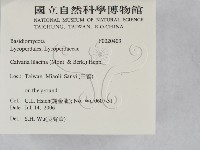 國立自然科學博物館
NATIONAL MUSEUM OF NATURAL SCIENCE
TAICHUNG, TAIWAN, R.O.CHINA
Basidiomycota F0020403
Lycoperdales, Lycoperdaceae
Calvatia lilacina (Mont. & Berk.) Henn.
Loc : Taiwan Miaoli Sanyi (三義)
on the ground
Col : No.
Date: Jul. 14, 2006
Det : S.H. Wu